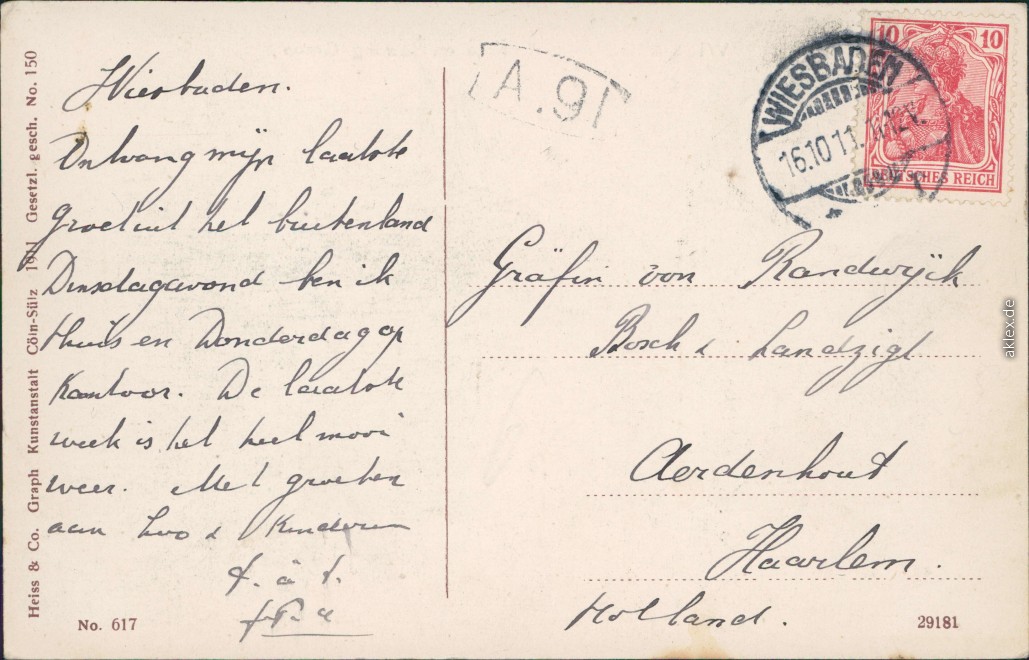 Wiesbaden.
Ontvang mijn laatste
groet uit het buitenland
Dinsdagavond ben ik
thuis en Donderdag op
kantoor. De laatste
week is het heel mooi
weer. Met groeten
aan &  Kinderen
t. à t.
Gräfin von Randwijck
Bosch & Landzigt
Aerdenhout
Haarlem.
Holland.
A.91
WIESBADEN
16.10.11.
1
10 10
DEUTSCHES REICH
Heiss & Co. Graph Kunstanstalt Cöln-Sülz 1911 Gesetzl. gesch. No. 150
No. 617
29181
aklex.de